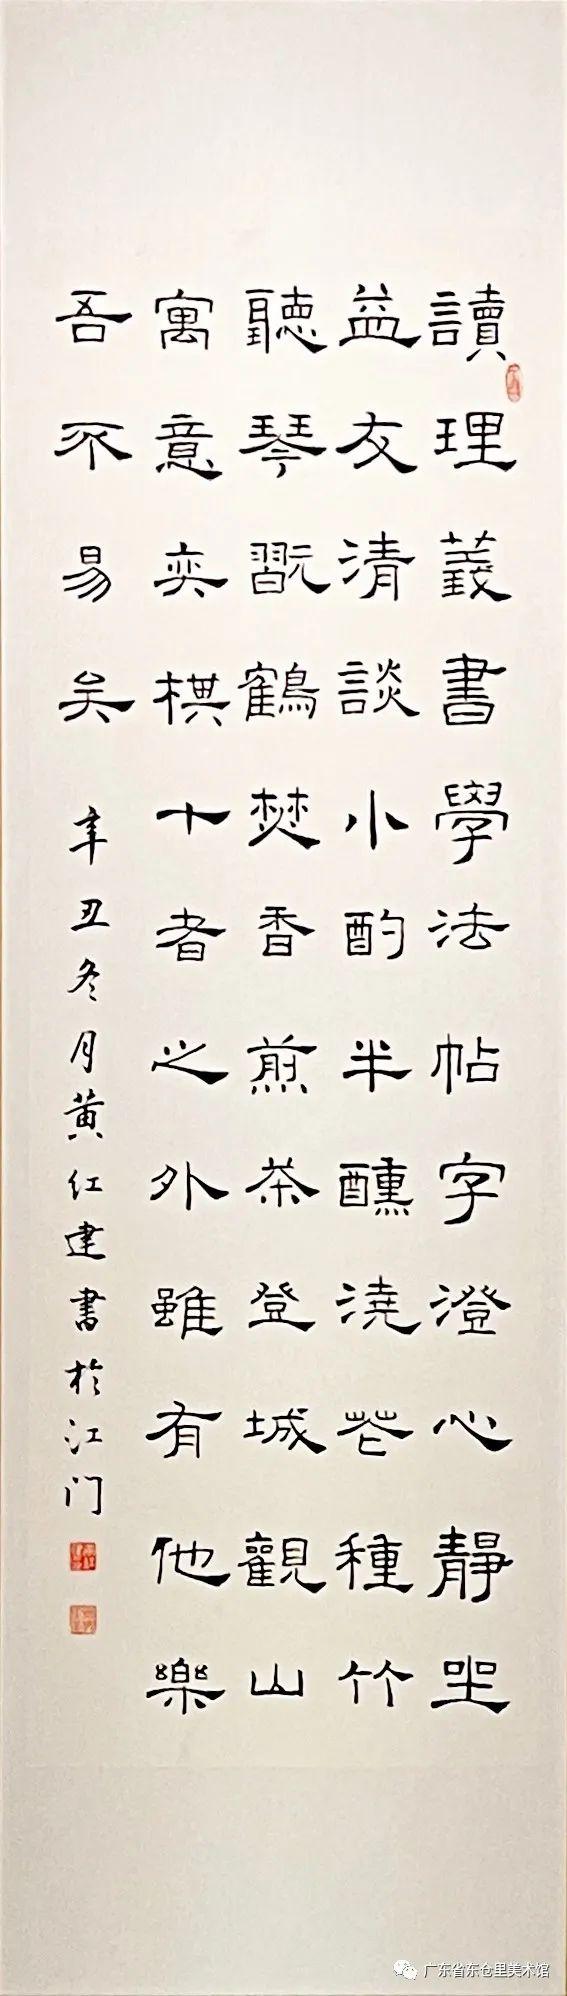 讀理義書學法帖字澄心靜坐
益友清談小酌半醺澆花種竹
聽琴翫鶴焚香煎茶登城觀山
寓意奕棋十者之外雖有他樂
吾不易矣
辛丑冬月黄红建書於江门
广东省东仓里美术馆